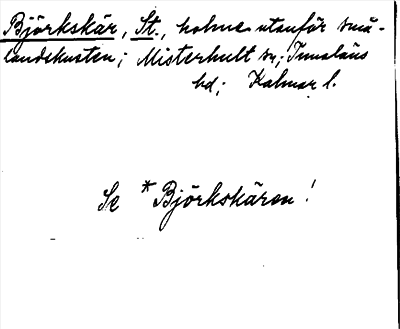 Björkskär, St., holme utanför små-
landskusten; Misterhult sn; Tunaläns
hd; Kalmar l.
Se *Björkskären!